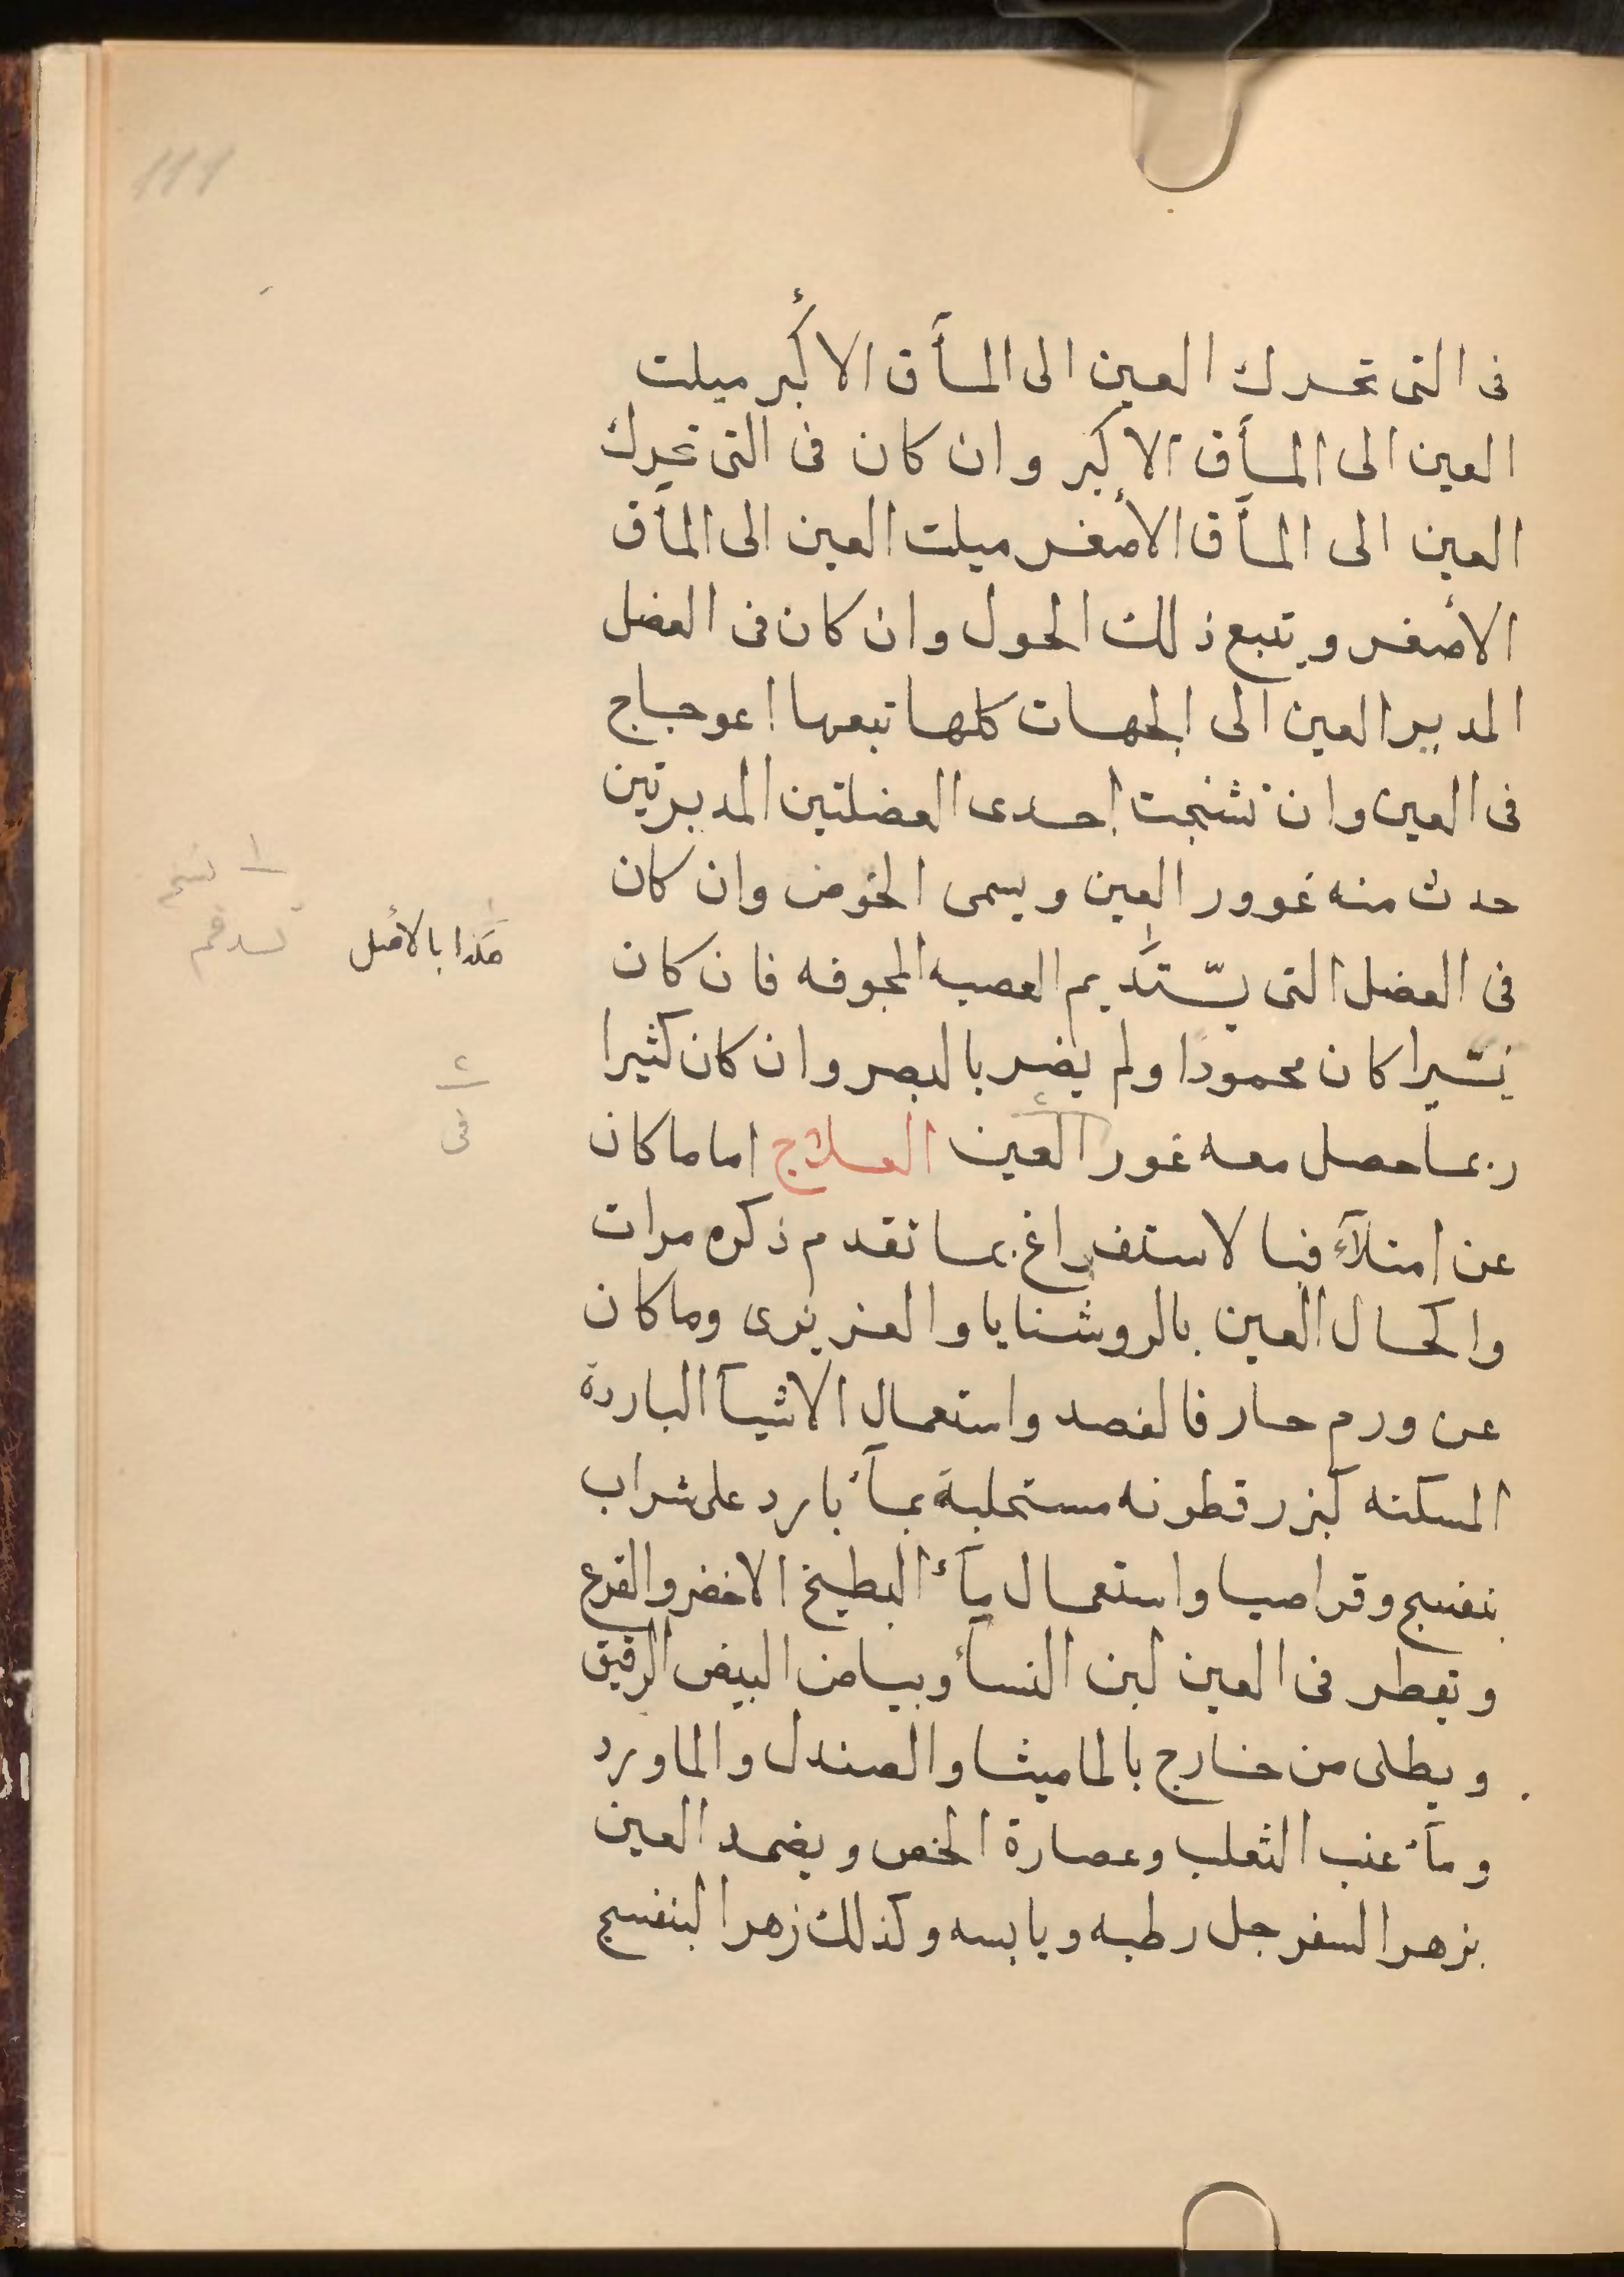 111
فى التى تحرك العين الى المأق الأكبر ميلت
العين الى المأق الاكبر وان كان فى التى تحرك
العين الى المأق الأصغر ميلت العين الى المأق
الأصغر ويتبع ذلك الحول وان كان فى العضل
المدير العين الى الجهات كلها تبعها اعوجاج
فى العين وان تشنجت احدى العضلتين المديرتين
حدث منه غوور العين ويسمى الخوص وان كان
فى العضل التى يستديم العصبه المجوفه فان كان
يسيرا كان محمودا ولم يضر بالبصر وان كان كثيرا
ربما حصل معه غور العين العلاج اما ما كان
عن امتلآء فبالاستفراغ بما تقدم ذكره مرات
واكحال العين بالروشنايا والعزيزى وما كان
عن ورم حار فالفصد واستعمال الاشيآ الباردة
المسكنه كبزر قطونه مستحلبة بمآء بارد على شراب
بنفسج وقراصيا واستعمال مآء البطيخ الاخضر والقرع
وتقطر فى العين لبن النسأ وبياض البيض الرقيق
ويطلى من خارج بالماميثا والصندل والماورد
ومآء عنب الثعلب وعصارة الخس ويضمد العين
بزهر السفرجل رطبه ويابسه وكذلك زهر البنفسج
هكذا بالأصل
٢
فى